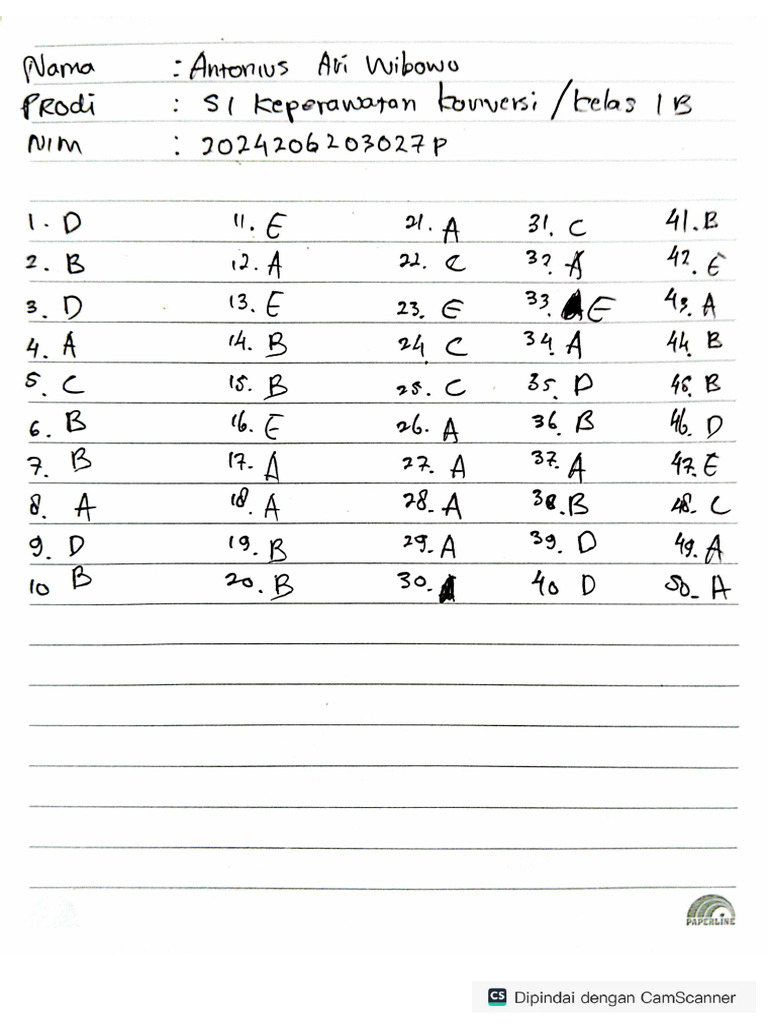 Nama : Antonius Ari Wibowo
Prodi : S1 Keperawatan konversi / kelas 1B
NIM : 2024206203027P
1. D 11. E 21. A 31. C 41. B
2. B 12. A 22. C 32 A 42. E
3. D 13. E 23. E 33. E 43. A
4. A 14. B 24 C 34. A 44. B
5. C 15. B 25. C 35. D 45. B
6. B 16. E 26. A 36. B 46. D
7. B 17. A 27. A 37. A 47. E
8. A 18. A 28. A 38. B 48. C
9. D 19. B 29. A 39. D 49. A
10 B 20. B 30. 40 D 50. A
PAPERLINE
CS Dipindai dengan CamScanner